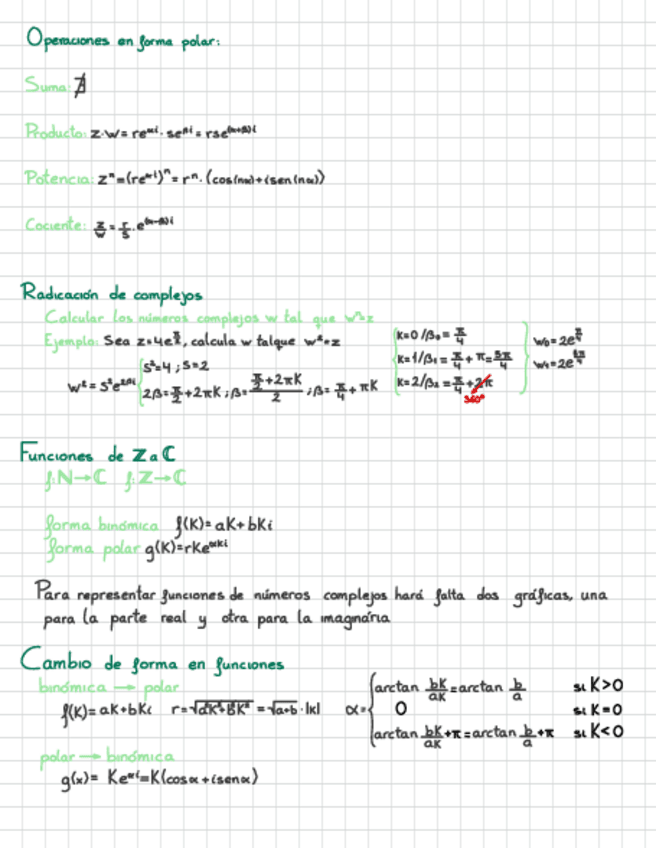 Operaciones en forma polar:
Suma: ∄
Producto: z·w = re^{αi} · se^{βi} = rse^{(α+β)i}
Potencia: z^n = (re^{αi})^n = r^n · (cos(nα)+isen(nα))
Cociente: z/w = r/s · e^{(α-β)i}
Radicación de complejos
Calcular los números complejos w tal que w^n=z
Ejemplo: Sea z=4e^{π/2}, calcula w talque w²=z
w² = s²e^{2βi} { s²=4 ; s=2
2β=π/2+2πK ; β= (π/2+2πK)/2 ; β= π/4+πK
K=0/β₀= π/4
K=1/β₁= π/4 + π = 5π/4
K=2/β₂ = π/4 + 2π
360°
w₀=2e^{π/4}
w₁=2e^{5π/4}
Funciones de Z a ℂ
f:N→ℂ f:Z→ℂ
forma binómica f(K)= aK+bKi
forma polar g(K)=rKe^{αKi}
Para representar funciones de números complejos hará falta dos gráficas, una
para la parte real y otra para la imaginária
Cambio de forma en funciones
binómica → polar
f(K)= aK+bKi r=√(a²K²+B²K²) = √(a+b) · |K|
α= { arctan bK/aK = arctan b/a si K>0
0 si K=0
arctan bK/aK +π = arctan b/a +π si K<0
polar → binómica
g(x)= Ke^{αi}=K(cosα+isenα)